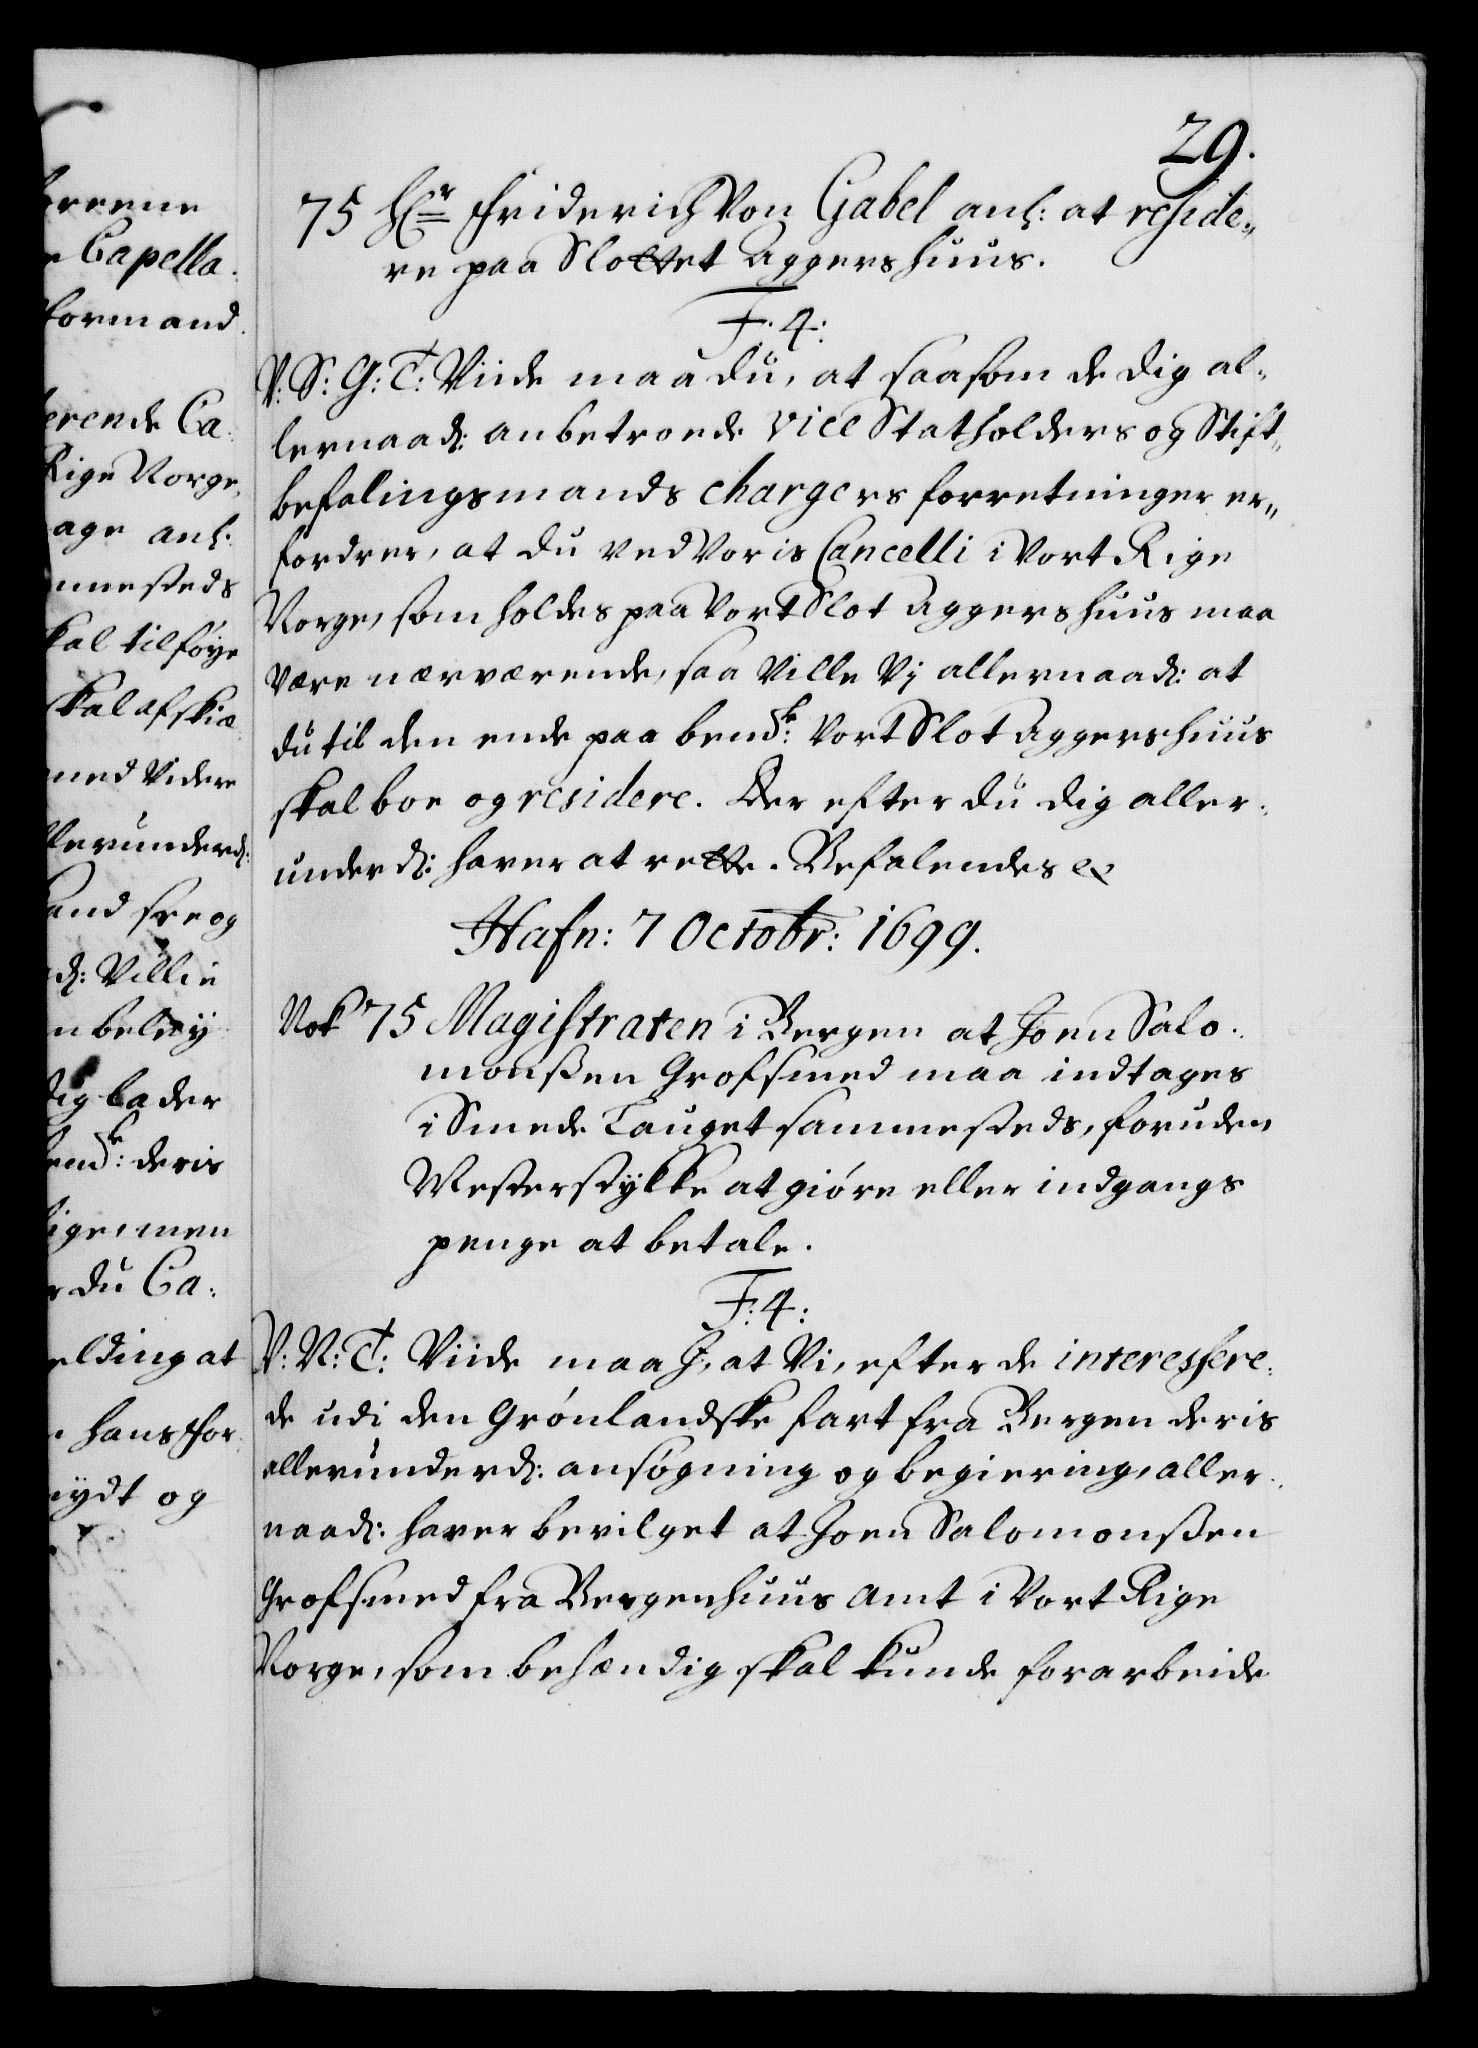 29.
75 Hr Friderich Von Gabel anl: at reside„
re paa Slottet Aggershuus.
F: 4:
V: S: G: T: Viide maa du, at saasom de dig al„
lernaad: anbetroede Vice Statholders og Stift„
befalingsmands chargers forretninger er„
fordrer, at du ved Voris Cancelli i Vort Rige
Norge, som holdes paa Vort Slot Aggershuus maa
være nærværende, saa Ville Vj allernaad: at
du til den ende paa bemte: Vort Slot Aggershuus
skal boe og residere. Der efter du dig aller„
underd: haver at rette. Befalendes etc
Hafn: 7 Octobr: 1699.
Nok 75 Magistraten i Bergen at Joen Salo„
monßen Grofsmed maa indtages
i Smede Lauget sammesteds, foruden
Mesterstykke at giöre eller indgangs
penge at betale.
F: 4:
V: N: T: Viide maa J, at Vi, efter de interessere„
de udi den Grönlandske fart fra Bergen deris
allerunderd: ansögning og begiering, aller„
naad: haver bevilget at Joen Salomonßen
Grofsmed fra Bergenhuus Amt i Vort Rige
Norge, som behændig skal kunde forarbeide
Capella
formand
erende Ca„
Rige Norge,
age anl:
mmesteds
kal tilföye
skal afskie
med Videre
llerunderd:
and see og
d: Villie
dig lader
bemte: deris
ige, men
du Ca„
elding at
hans for„
nydt og